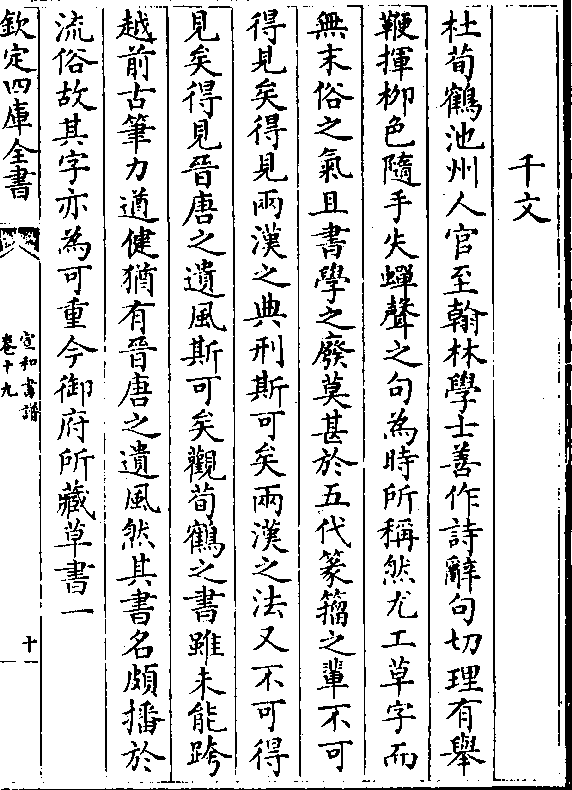 千文
杜荀鶴池州人官至翰林學士善作詩辭句切理有舉
鞭揮柳色隨手失蟬聲之句為時所稱然尤工草字而
無末俗之氣且書學之廢莫甚於五代篆籀之輩不可
得見矣得見兩漢之典刑斯可矣兩漢之法又不可得
見矣得見晉唐之遺風斯可矣觀荀鶴之書雖未能跨
越前古筆力遒健猶有晉唐之遺風然其書名頗播於
流俗故其字亦為可重今御府所藏草書一
欽定四庫全書
宣和書譜
卷十九
十